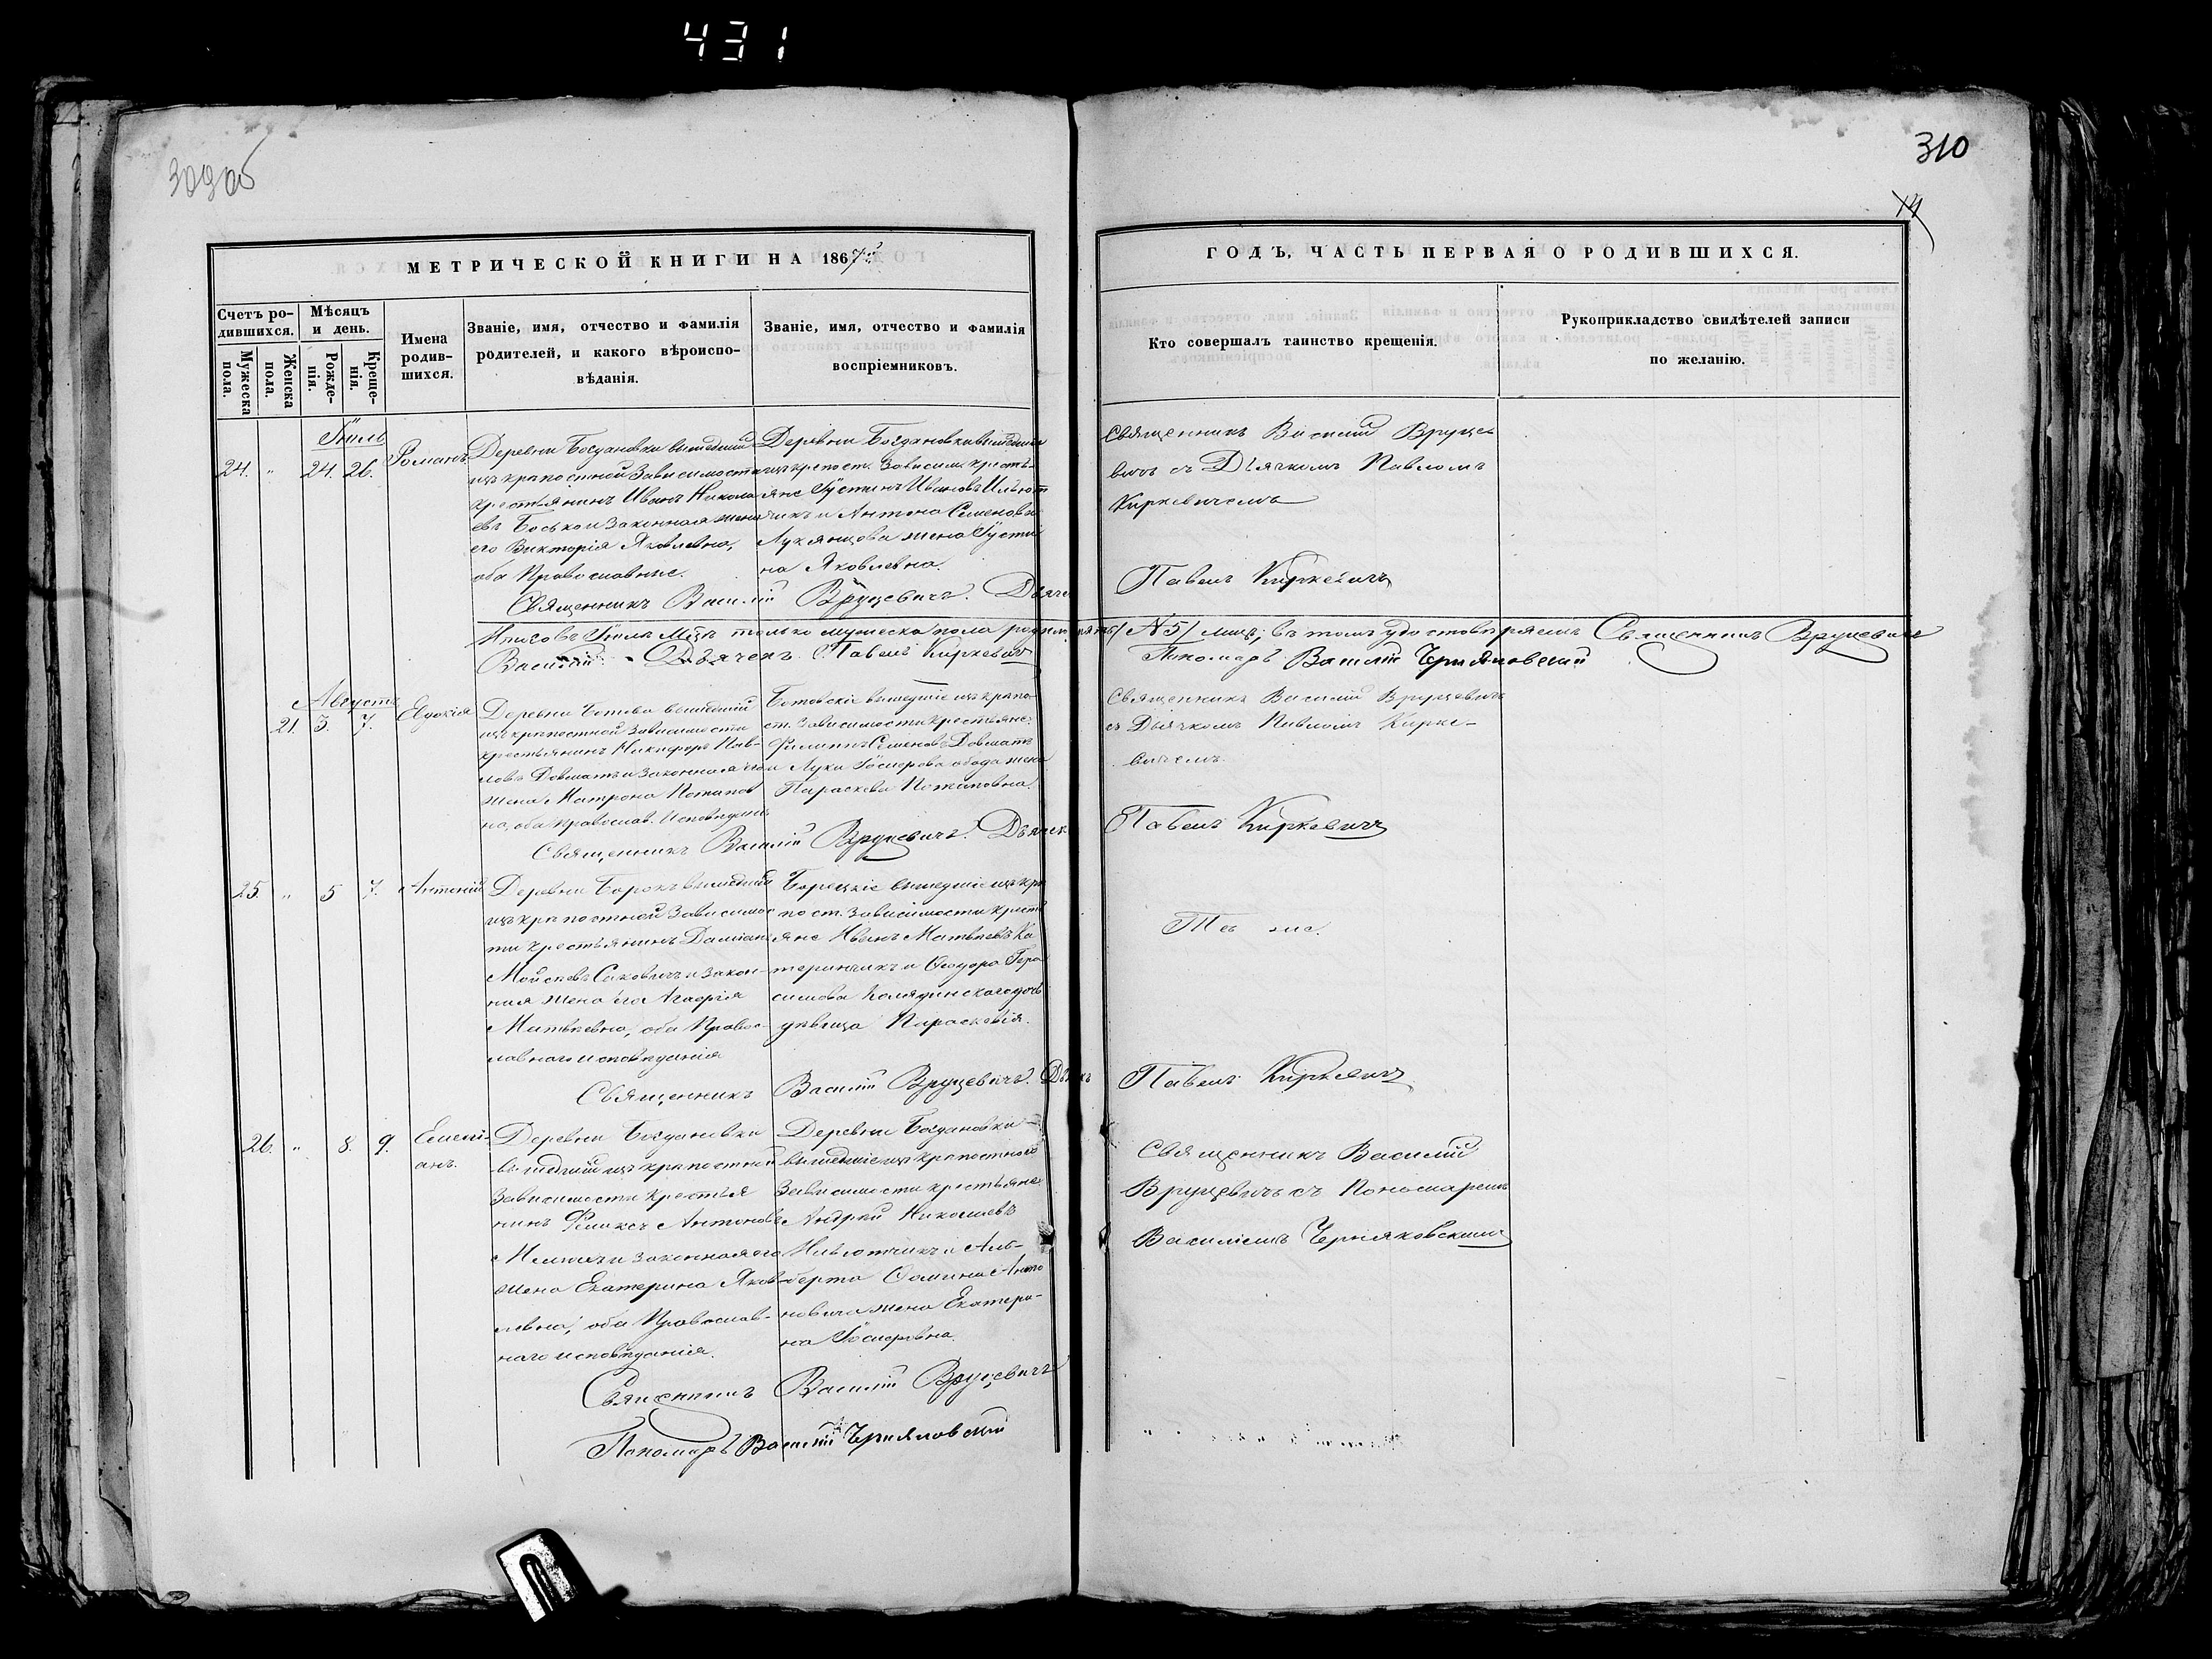 431
309об
310
14
МЕТРИЧЕСКОЙ КНИГИ НА 1867й
ГОДЪ, ЧАСТЬ ПЕРВАЯ О РОДИВШИХСЯ.
Счетъ ро-
дившихся.
Мужеска
пола.
Женска
пола.
Мѣсяцъ
и день.
Рожде-
нія.
Креще-
нія.
Имена
родив-
шихся.
Званіе, имя, отчество и фамилія
родителей, и какого вѣроиспо-
вѣданія.
Званіе, имя, отчество и фамилія
воспріемниковъ.
Кто совершалъ таинство крещенія.
Рукоприкладство свидѣтелей записи
по желанію.
Іюль
24. " 24. 26. Романъ
Деревни Богдановки вышедшій
изъ крѣпостной Зависимости
крестьянинъ Иванъ Никола
евъ Босько и Законная жена
его Викторія Яковлевна,
оба Православные.
Деревни Богдановки вышедшіе
изъ крѣпост. Зависим. кресть-
яне Іустинъ Ивановъ
и Антона Семенова
Лукянцова жена Іусти
на Яковлевна.
Священникъ Василій Вруцевичъ. Дьячекъ
Священникъ Василій Вруце
вичъ съ Дьячкомъ Павломъ
Киркевичемъ
Павелъ Киркевичъ
Итого въ Іюлѣ М-цѣ только мужеска пола родилось пять /№5/ лицъ; въ томъ удостовѣряемъ Священникъ Вруцевичъ
Василій. Дьячекъ Павелъ Киркевичъ
Пономарь Василій Черняковскій
Августъ
21. 3. 7. Евдокія
Деревни Ботова вышедшій
изъ крѣпостной Зависимости
крестьянинъ Никифоръ Пав-
ловъ Довматъ и Законная его
жена Матрона Потапов
на, оба Православ. Исповѣданія
Ботовскіе вышедшіе изъ крѣпо-
ст. Зависимости крестьяне:
Филиппъ Семеновъ Довматъ
и Луки Іосифова жена
Параскева Потаповна.
Священникъ Василій Вруцевичъ. Дьячек.
Священникъ Василій Вруцевичъ
съ Дьячкомъ Павломъ Кирке-
вичемъ.
Павелъ Киркевичъ
25. " 5 7. Антоній
Деревни Борокъ вышедшій
изъ крѣпостной Зависимос
ти крестьянинъ Даміанъ
Мойсеевъ Саковичъ и Закон-
ная жена его Агафія
Матвѣевна, оба Правос-
лавнаго исповѣданія
Борецкіе вышедшіе изъ крѣ
пост. Зависимости кресть
яне Иванъ Матвѣевъ Ка
теринчикъ и Ѳеодора Гера
симова дочь
дѣвица Параскевія.
Священникъ Василій Вруцевичъ. Дьячекъ
Тѣ же.
Павелъ Киркевичъ
26. " 8. 9. Емели-
анъ.
Деревни Богдановки
вышедшій изъ крѣпостной
Зависимости крестья
нинъ Феликсъ Антоновъ
и законная его
жена Екатерина Яков-
левна, оба Православ-
наго исповѣданія.
Деревни Богдановки
вышедшіе изъ крѣпостной
Зависимости крестьяне
Андрей Николаевъ
и Аль-
берта Ѳомина Анто
новича жена Екатери-
на Іосифовна.
Священникъ Василій Вруцевичъ
Пономарь Василій Черняковскій
Священникъ Василій
Вруцевичъ съ Пономаремъ
Василіемъ Черняковскимъ